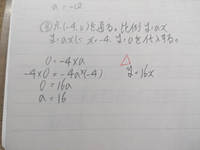 a = -12
③ 点(-4,0)を通る。比例 y=ax
y=axに x=-4. y=0を代入する。
0 = -4×a
-4×0 = -4a×(-4)
0 = 16a
a = 16
y = 16x